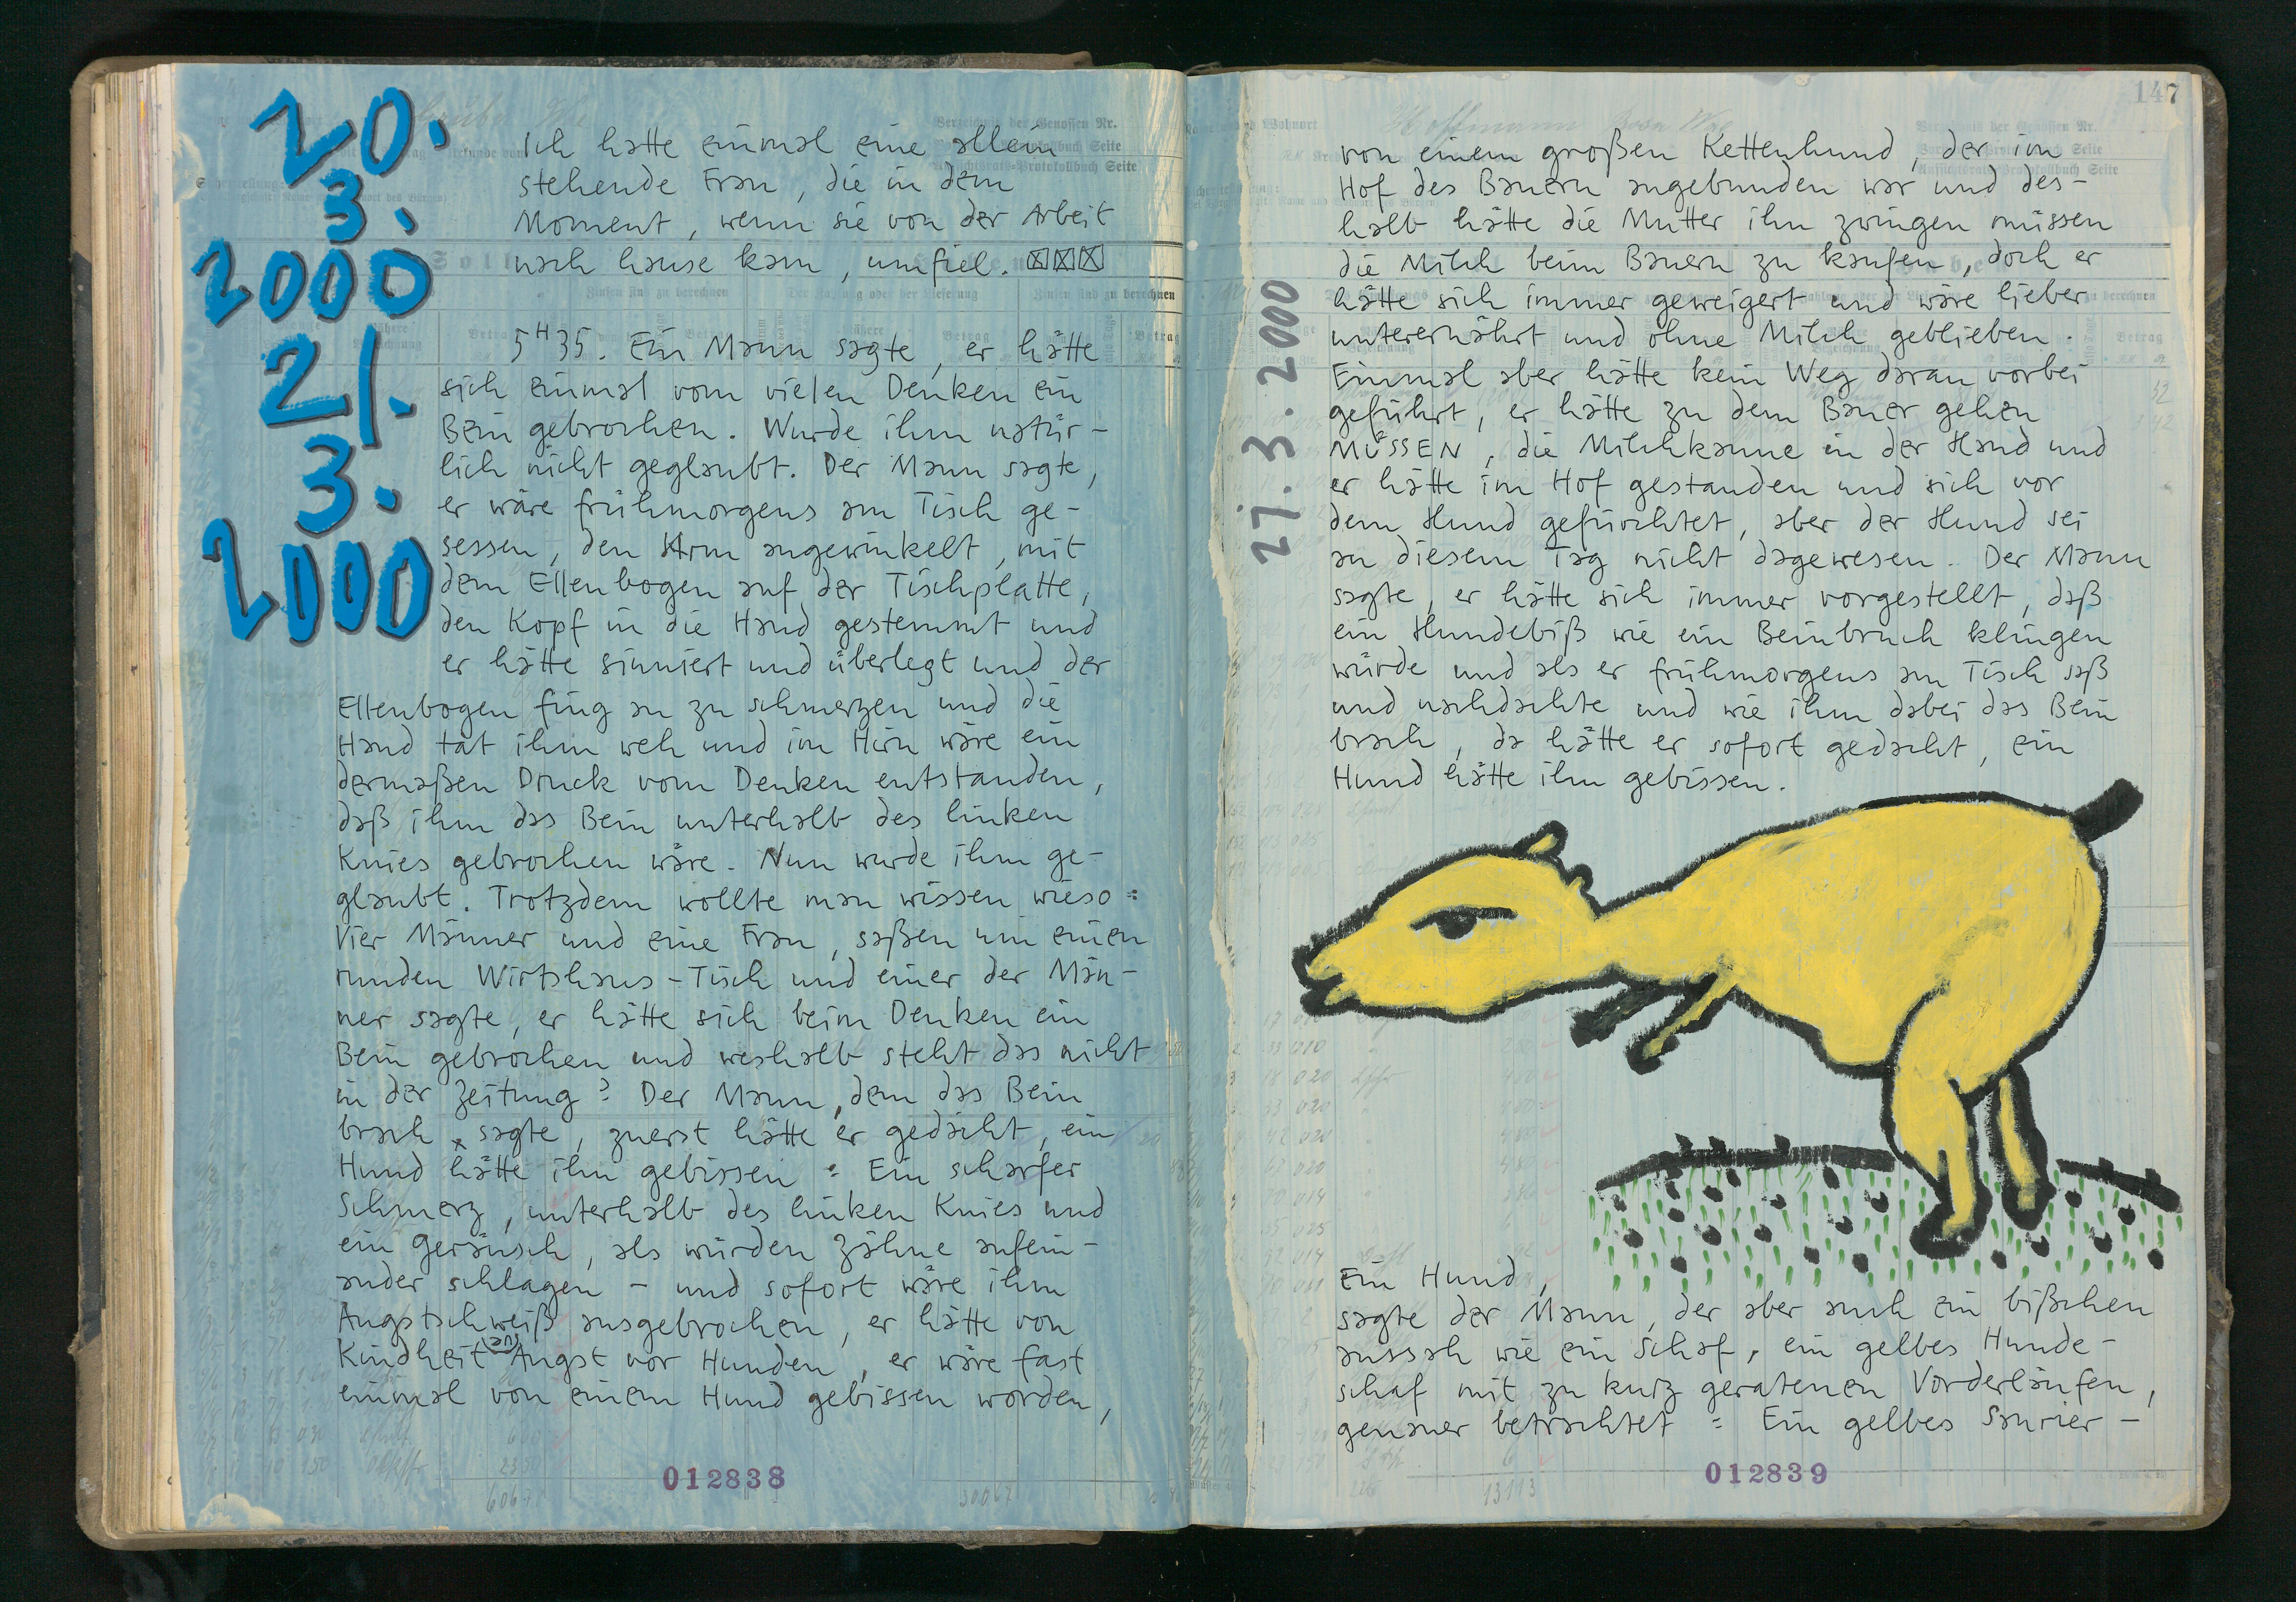 20.
3.
2000
21.
3.
2000
Ich hatte einmal eine allein
stehende Frau, die in dem
Moment, wenn sie von der Arbeit
nach hause kam, umfiel.
5 H 35. Ein Mann sagte, er hätte
sich einmal vom vielen Denken ein
Bein gebrochen. Wurde ihm natür-
lich nicht geglaubt. Der Mann sagte,
er wäre frühmorgens am Tisch ge-
sessen, den Arm angewinkelt, mit
dem Ellenbogen auf der Tischplatte,
den Kopf in die Hand gestemmt und
er hätte sinniert und überlegt und der
Ellenbogen fing an zu schmerzen und die
Hand tat ihm weh und im Hirn wäre ein
dermaßen Druck vom Denken entstanden,
daß ihm das Bein unterhalb des linken
Knies gebrochen wäre. Nun wurde ihm ge-
glaubt. Trotzdem wollte man wissen wieso:
Vier Männer und eine Frau, saßen um einen
runden Wirtshaus-Tisch und einer der Män-
ner sagte, er hätte sich beim Denken ein
Bein gebrochen und weshalb steht das nicht
in der Zeitung? Der Mann, dem das Bein
brach, sagte, zuerst hätte er gedacht, ein
Hund hätte ihn gebissen: Ein scharfer
Schmerz, unterhalb des linken Knies und
ein Geräusch, als würden Zähne aufein-
ander schlagen - und sofort wäre ihm
Angstschweiß ausgebrochen, er hätte von
Kindheit an Angst vor Hunden, er wäre fast
einmal von einem Hund gebissen worden,
012838
147
Verzeichnis der Genossen Nr.
27.3.2000
von einem großen Kettenhund, der im
Hof des Bauern angebunden war und des-
halb hätte die Mutter ihn zwingen müssen
die Milch beim Bauern zu kaufen, doch er
hätte sich immer geweigert und wäre lieber
unterernährt und ohne Milch geblieben.
Einmal aber hätte kein Weg daran vorbei
geführt, er hätte zu dem Bauer gehen
MÜSSEN, die Milchkanne in der Hand und
er hätte im Hof gestanden und sich vor
dem Hund gefürchtet, aber der Hund sei
an diesem Tag nicht dagewesen. Der Mann
sagte, er hätte sich immer vorgestellt, daß
ein Hundebiß wie ein Beinbruch klingen
würde und als er frühmorgens am Tisch saß
und nachdachte und wie ihm dabei das Bein
brach, da hätte er sofort gedacht, ein
Hund hätte ihm gebissen.
Ein Hund,
sagte der Mann, der aber auch ein bißchen
aussah wie ein Schaf, ein gelbes Hunde-
schaf mit zu kurz geratenen Vorderläufen,
genauer betrachtet: Ein gelbes Saurier-
012839